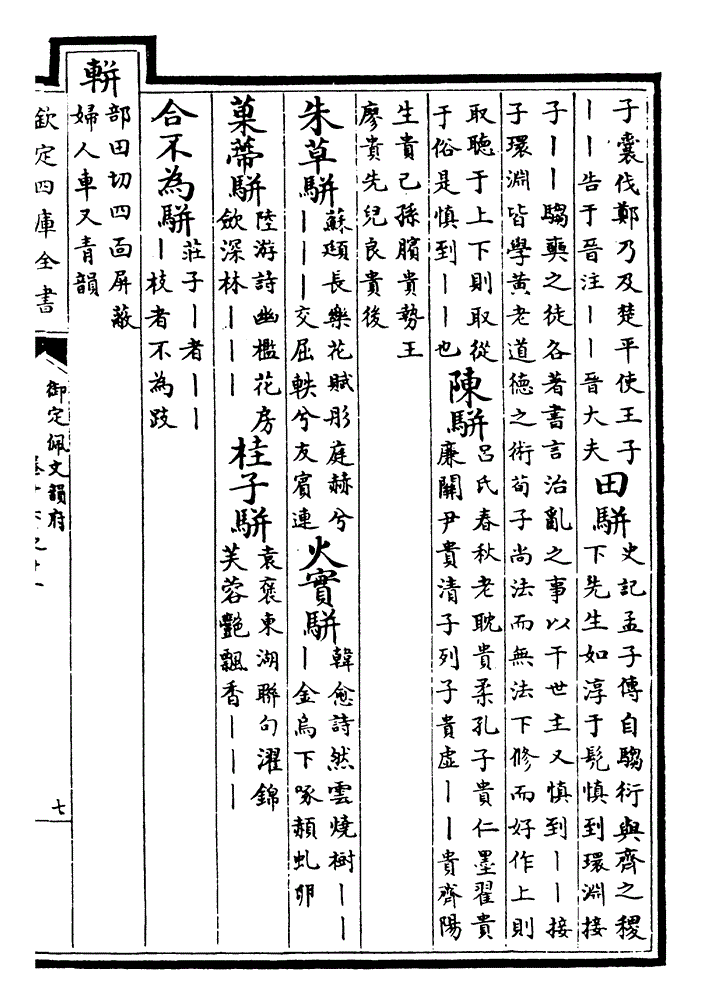 子囊伐鄭乃及楚平使王子
丨丨告于晉注丨丨晉大夫
田駢
史記孟子傳自騶衍與齊之稷
下先生如淳于髡慎到環淵接
子丨丨騶奭之徒各著書言治亂之事以干世主又慎到丨丨接
子環淵皆學黃老道德之術荀子尚法而無法下修而好作上則
取聽于上下則取從
于俗是慎到丨丨也
陳駢
呂氏春秋老耽貴柔孔子貴仁墨翟貴
廉關尹貴清子列子貴虛丨丨貴齊陽
生貴己孫臏貴勢王
廖貴先兒良貴後
朱草駢
蘇頲長樂花賦彤庭赫兮
丨丨丨交屈軼兮友賓連
火實駢
韓愈詩然雲燒樹丨丨
丨金烏下啄赬虬卵
菓蒂駢
陸游詩幽檻花房
歛深林丨丨丨
桂子駢
袁褒東湖聯句濯錦
芙蓉艷飄香丨丨丨
合不為駢
莊子丨者丨丨
丨枝者不為跂
軿
部田切四面屏蔽
婦人車又青韻
欽定四庫全書
御定佩文韻府
七